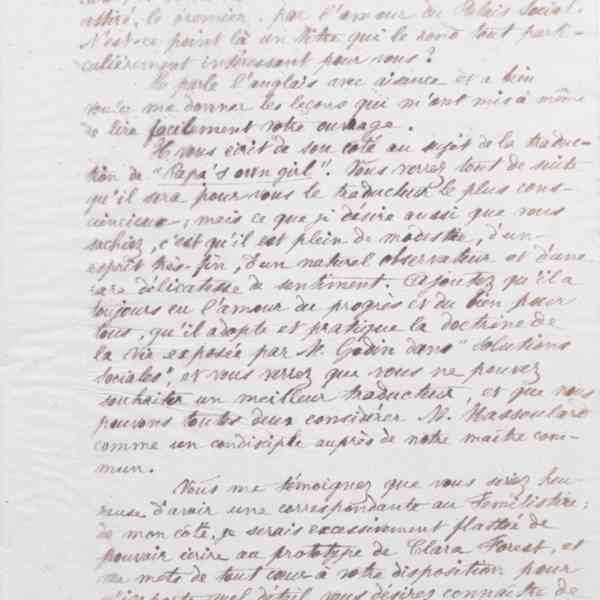 attiré, le premier, par l'amour du Palais Social.
N'est-ce point là un titre qui le rend tout parti-
culièrement intéressant pour vous ?
Il parle l'anglais avec aisance et a bien
voulu me donner les leçons qui m'ont mis à même
de lire facilement votre ouvrage.
Il vous écrit de son côté au sujet de la traduc-
tion de "Papa's own girl". Vous verrez tout de suite
qu'il sera pour vous le traducteur le plus cons-
ciencieux, mais ce que je désire aussi que vous
sachiez, c'est qu'il est plein de modestie, d'un
esprit très-fin, d'un naturel observateur et d'une
rare délicatesse de sentiment. Ajoutez qu'il a
toujours eu l'amour du progrès et du bien pour
tous, qu'il adopte et pratique la doctrine de
la vie exposée par M. Godin dans "Solutions
sociales", et vous verrez que vous ne pouvez
souhaiter un meilleur traducteur, et que nous
pouvons toutes deux considérer M. Massoulard
comme un condisciple auprès de notre maître com-
mun.
Vous me témoignez que vous seriez heu-
reuse d'avoir une correspondante au Familistère ;
de mon côté, je serais excessivement flattée de
pouvoir écrire au prototype de Clara Forest, et
me mets de tout cœur à votre disposition pour
n'importe quel détail vous désirez connaître de